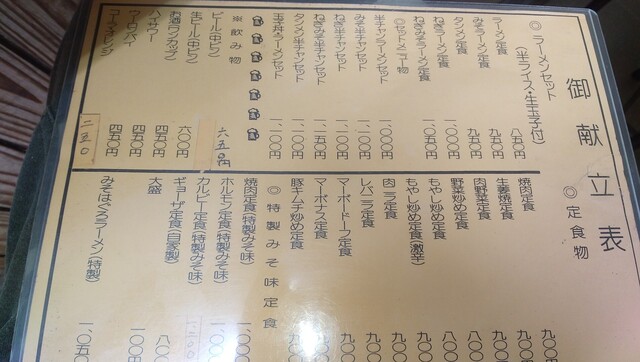 御献立表
◎ラーメンセット
(半ライス・生玉子付)
ラーメン定食 八五〇円
みそラーメン定食 九五〇円
タンメン定食 九五〇円
ねぎラーメン定食 一、〇〇〇円
ねぎみそラーメン定食 一、〇五〇円
◎セットメニュー物
半チャンラーメン 一、〇〇〇円
みそ半チャンセット 一、一〇〇円
ねぎ半チャンセット 一、一〇〇円
ねぎみそ半チャンセット 一、一五〇円
タンメン半チャンセット 一、一〇〇円
玉子丼ラーメンセット 一、一〇〇円
※飲み物
ビール(中ビン) 六五〇円
生ビール 六〇〇円
お酒(ワンカップ) 四五〇円
ハイサワー 四五〇円
ウーロンハイ 四五〇円
コーラ・オレンジ 二五〇
◎定食物
焼肉定食 九〇〇円
生姜焼定食 九〇〇
肉野菜定食 九〇〇
野菜炒め定食 八〇〇
もやし炒め定食 八〇〇
もやし炒め定食(激辛) 九〇〇
肉ニラ定食 九〇〇
レバニラ定食 九〇〇
マーボードーフ定食 九〇〇
マーボナス定食 九〇〇
豚キムチ炒め定食 九〇〇
◎特製みそ味定食
焼肉定食(特製みそ味)
ホルモン定食(特製みそ味)
カルビー定食(特製みそ味)
ギョーザ定食(自家製) 八〇〇
大盛 一〇〇円
みそはぐろラーメン(特製) 一、〇五〇